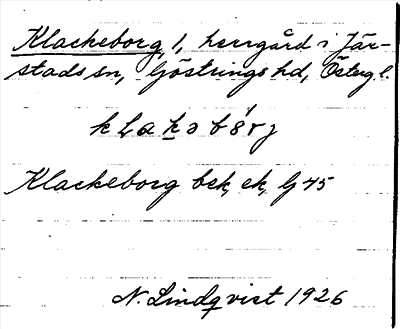 Klackeborg, 1, herrgård i Jär-
stads sn, Göstrings hd, Östergl.
Klackeborg bek, ek, G 45
N. Lindqvist 1926